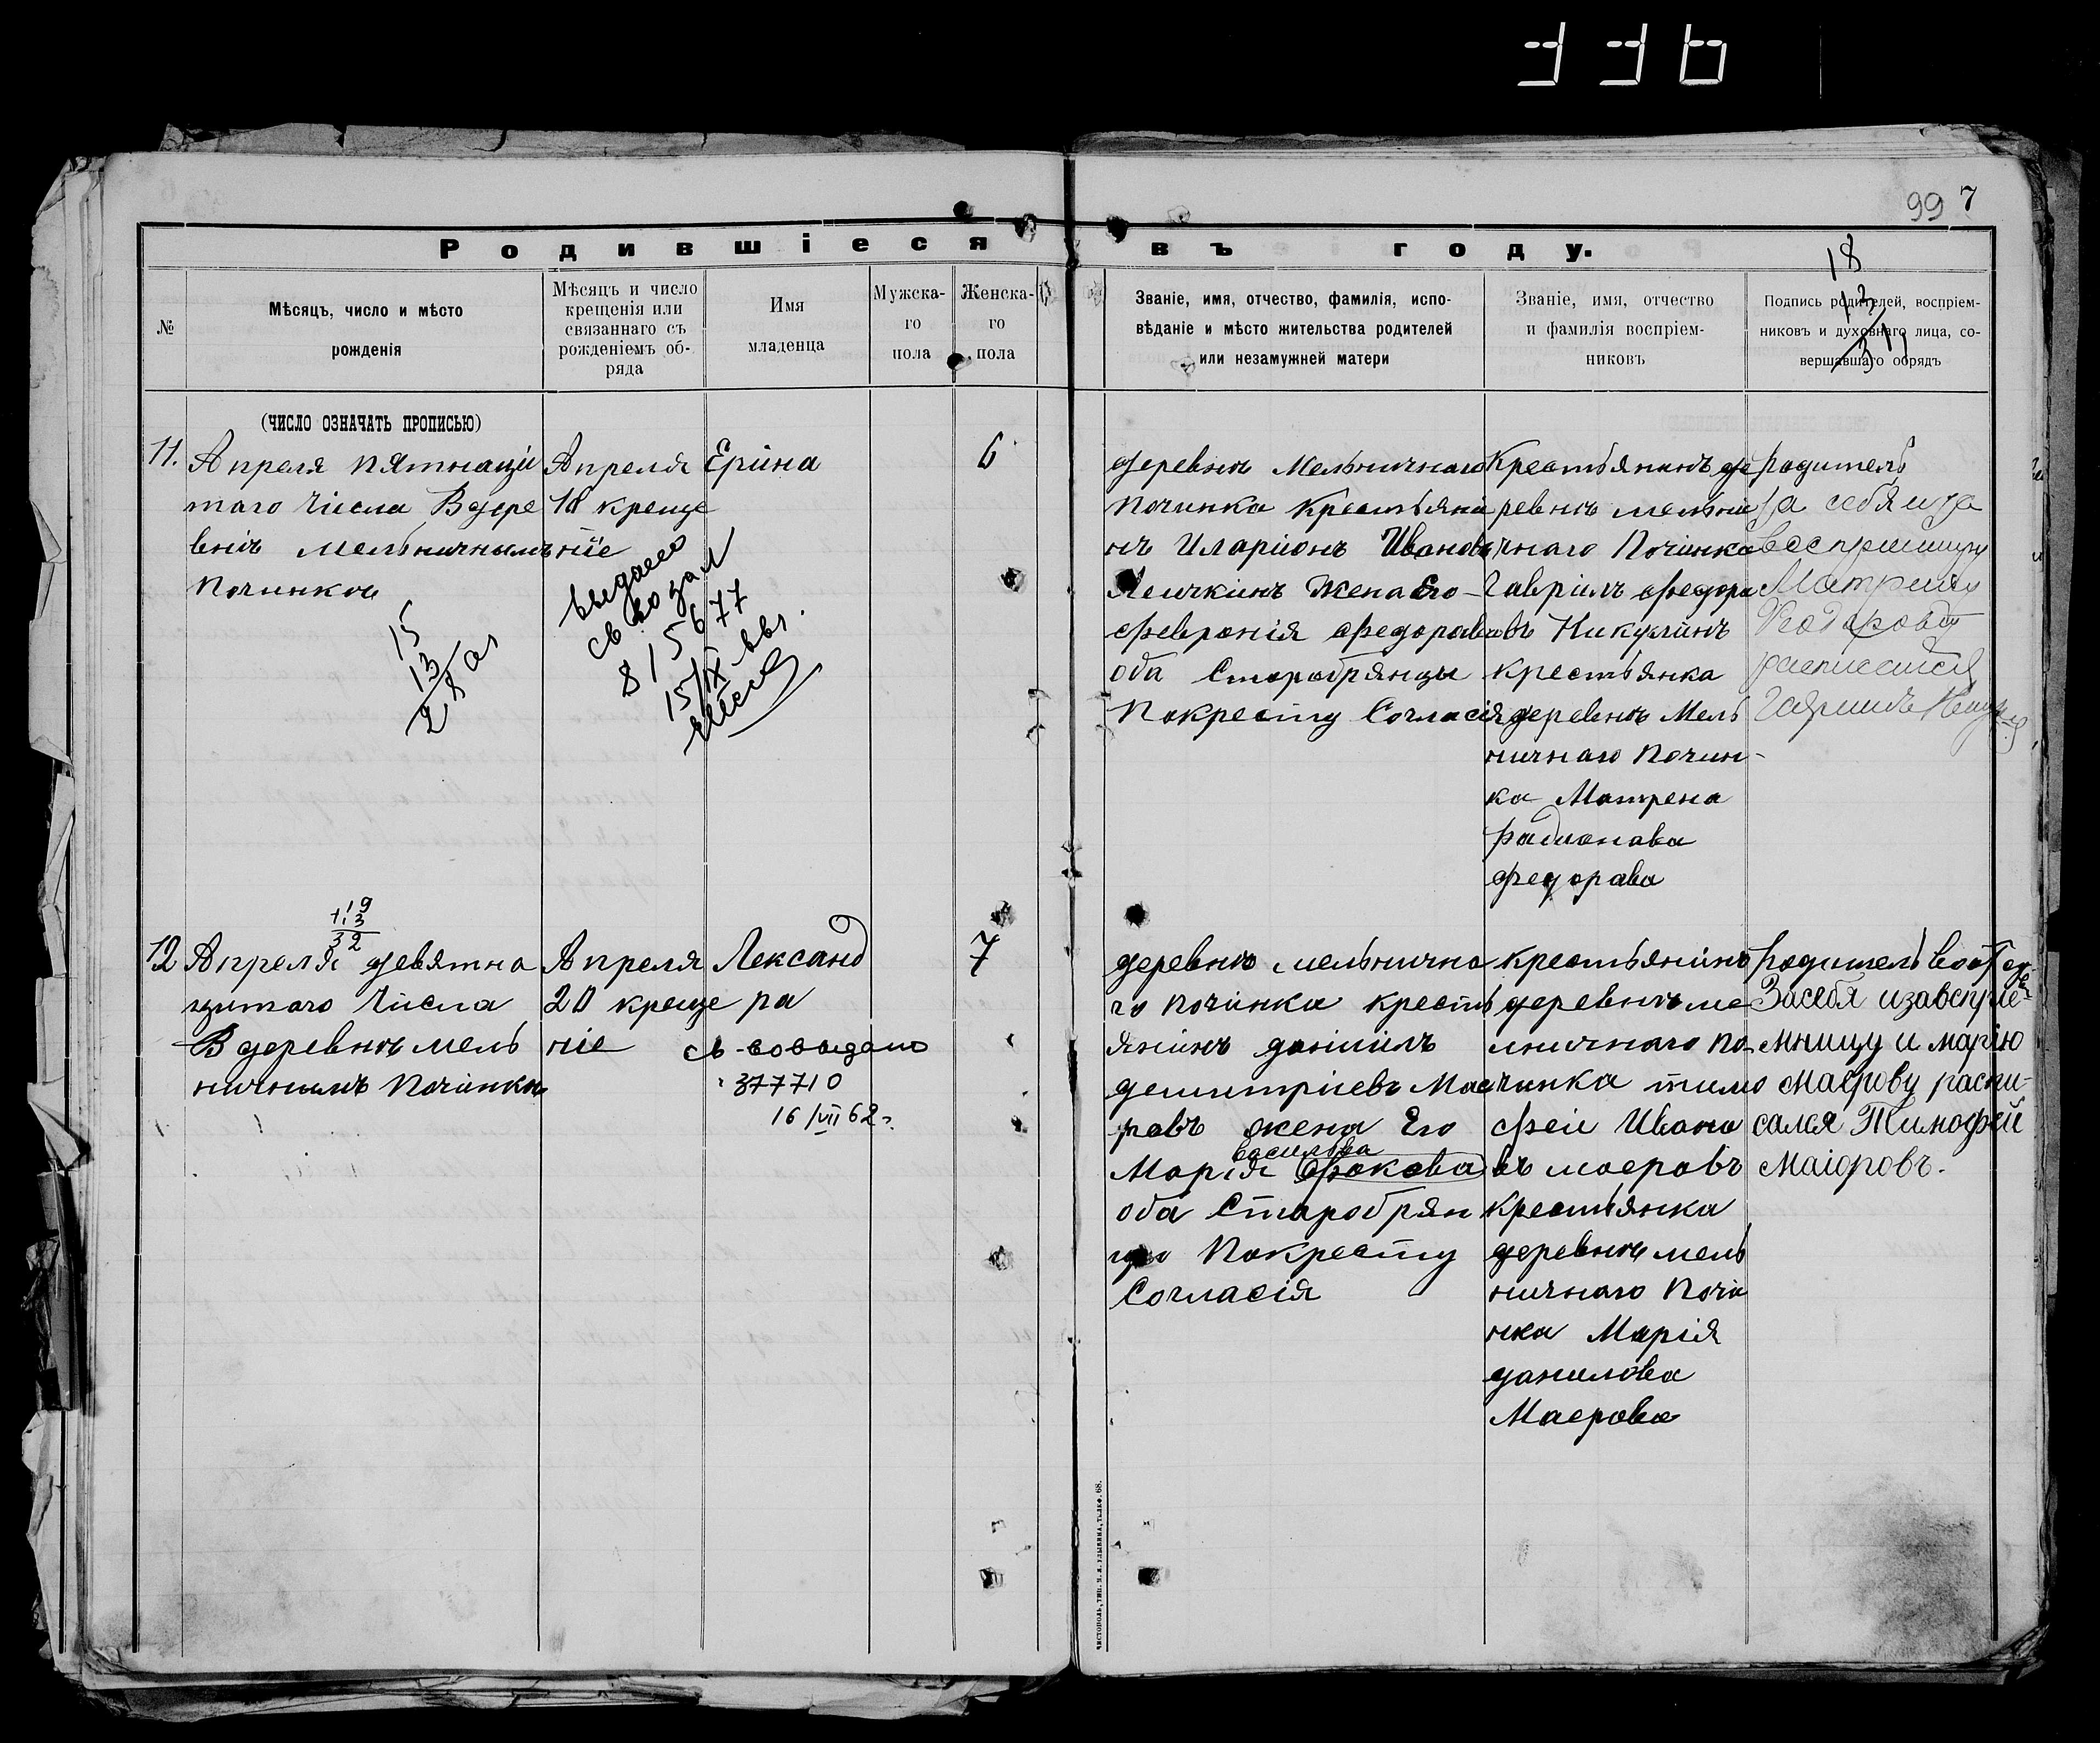 336
99 7
Родившіеся въ году.
18
13
31
№
Мѣсяцъ, число и мѣсто
рожденія
Мѣсяцъ и число
крещенія или
связаннаго съ
рожденіемъ об-
ряда
Имя
младенца
Мужска-
го
пола
Женска-
го
пола
Званіе, имя, отчество, фамилія, испо-
вѣданіе и мѣсто жительства родителей
или незамужней матери
Званіе, имя, отчество
и фамилія воспріем-
никовъ
Подпись родителей, воспріем-
никовъ и духовнаго лица, со-
вершавшаго обрядъ
(ЧИСЛО ОЗНАЧАТЬ ПРОПИСЬЮ)
11.
Апреля пятнаци
таго числа Вдере
внѣ Мельничнымъ
Починкѣ
15
13
28
Апреля
18 креще
ніе
выдано
св во
815677
15/IX
Ерина
6
деревнѣ Мельничнаго
Починка Крестьяни
нъ Иларіонъ Ивановъ
Жена Его
Февронія Федорова
оба Старобрянцы
Покресту Согласія
Крестьянинъ де
ревнѣ мельни
чнаго Починка
Гаврилъ Федоро
въ Никулинъ
крестьянка
деревнѣ Мель
ничнаго Почин-
ка Матрена
Радионава
Федорава
родитель
за себя и за
восприемницу
Матрену
Федорову
росписался
Гаврилъ
19
13
32
12
Апреля девятна
цитаго Числа
В деревнѣ мель
ничнымъ Починкѣ
Апреля
20 креще
ніе
Лександ
ра
св-во выдано
377710
16/VII 62 г.
7
деревнѣ мельнично
го починка кресть
янинъ данилъ
демитріевъ Мае
ровъ жена Его
василева
Марія Фокова
оба Старобрян
цы Покресту
Согласія
крестьянинъ
деревнѣ ме
льничнаго по-
чинка тимо
феи Ивано
въ маеровъ
крестьянка
деревнѣ мель
ничнаго Почи
нка Марія
данилова
Маерова
родитель
Засебя изавспріе-
мницу и марію
маерову распи-
сался Тимофей
маіоровъ.